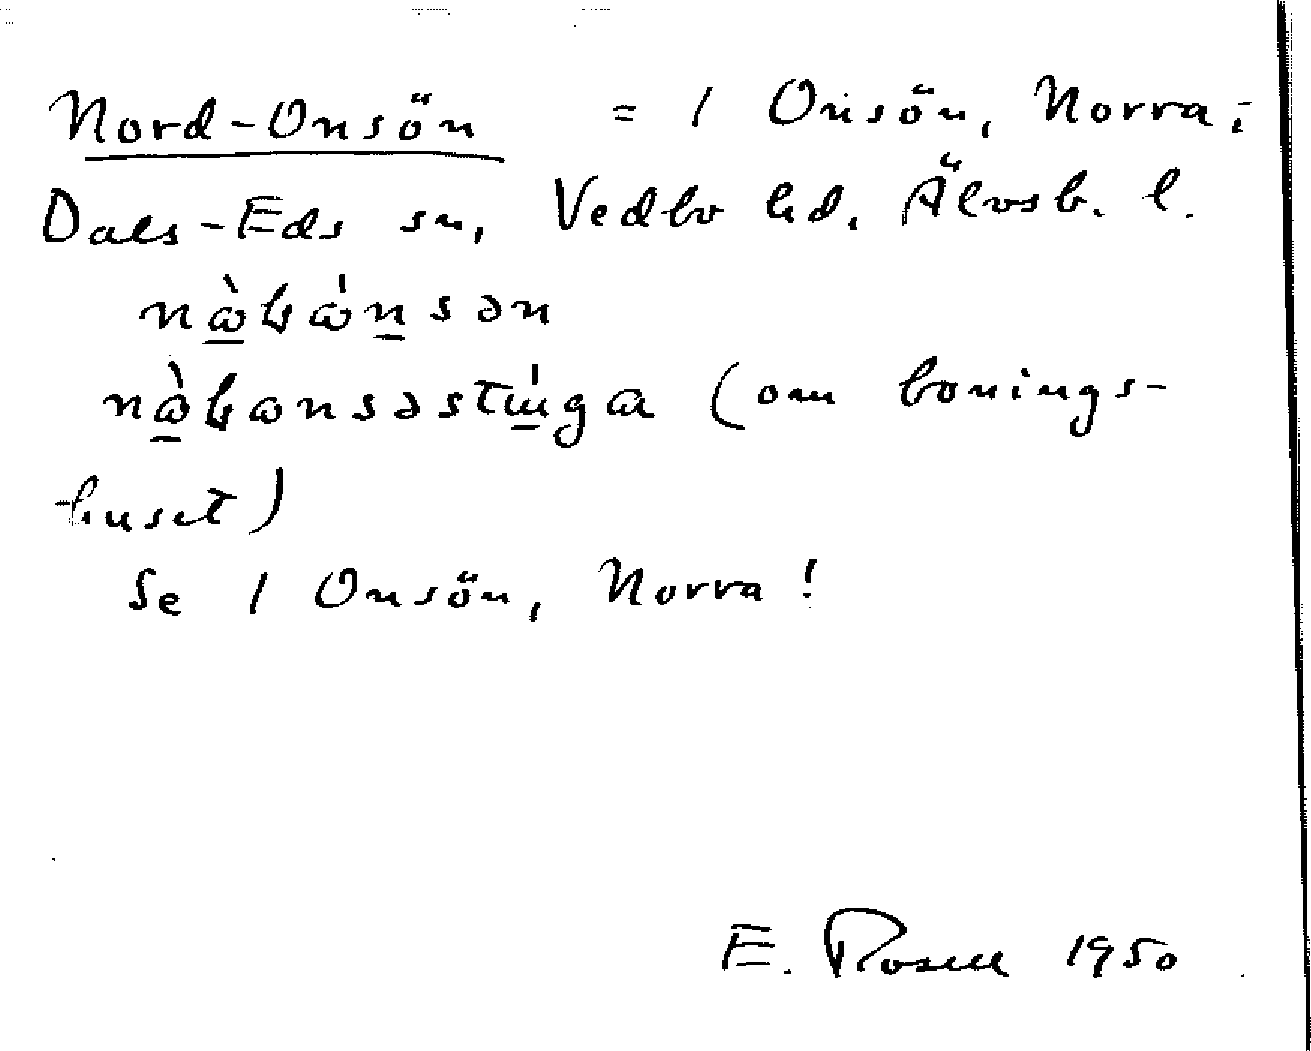 Nord-Onsön = 1 Onsön, Norra i
Dals-Eds sn, Vedbo hd. Älvsb. l.
(om bonings-
-huset)
Se 1 Onsön, Norra!
E. Rosell 1950